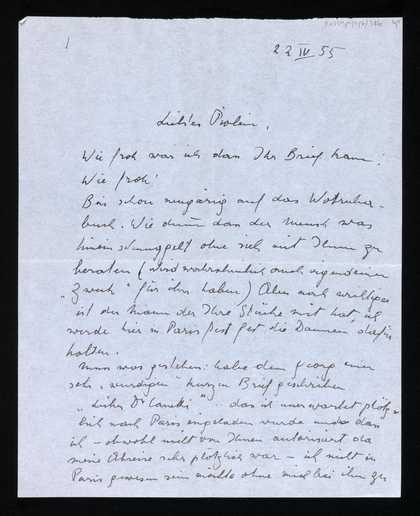 1
22 IV 55
Liebes
Wie froh war ich dass Ihr Brief kam!
Wie froh!
Bin schon neugierig auf das Wotruba-
buch. Wie dumm dass der Mensch was
hinein schmuggelt ohne sich mit Ihnen zu
beraten (wird wahrscheinlich auch irgendeinen
"Zweck" für ihn haben) Aber noch wichtiger
ist der Mann der Ihre Stücke mit hat, ich
werde hier in Paris fest fest die Daumen dafür
halten.
Muss was gestehen: habe dem Georg einen
sehr "würdigen" kurzen Brief geschrieben
"Lieber Dr Canetti" .. dass ich unerwartet plötz-
lich nach Paris eingeladen wurde und dass
ich – obwohl nicht von Ihnen autorisiert da
meine Abreise sehr plötzlich war – ich nicht in
Paris gewesen sein möchte ohne mich bei ihm zu